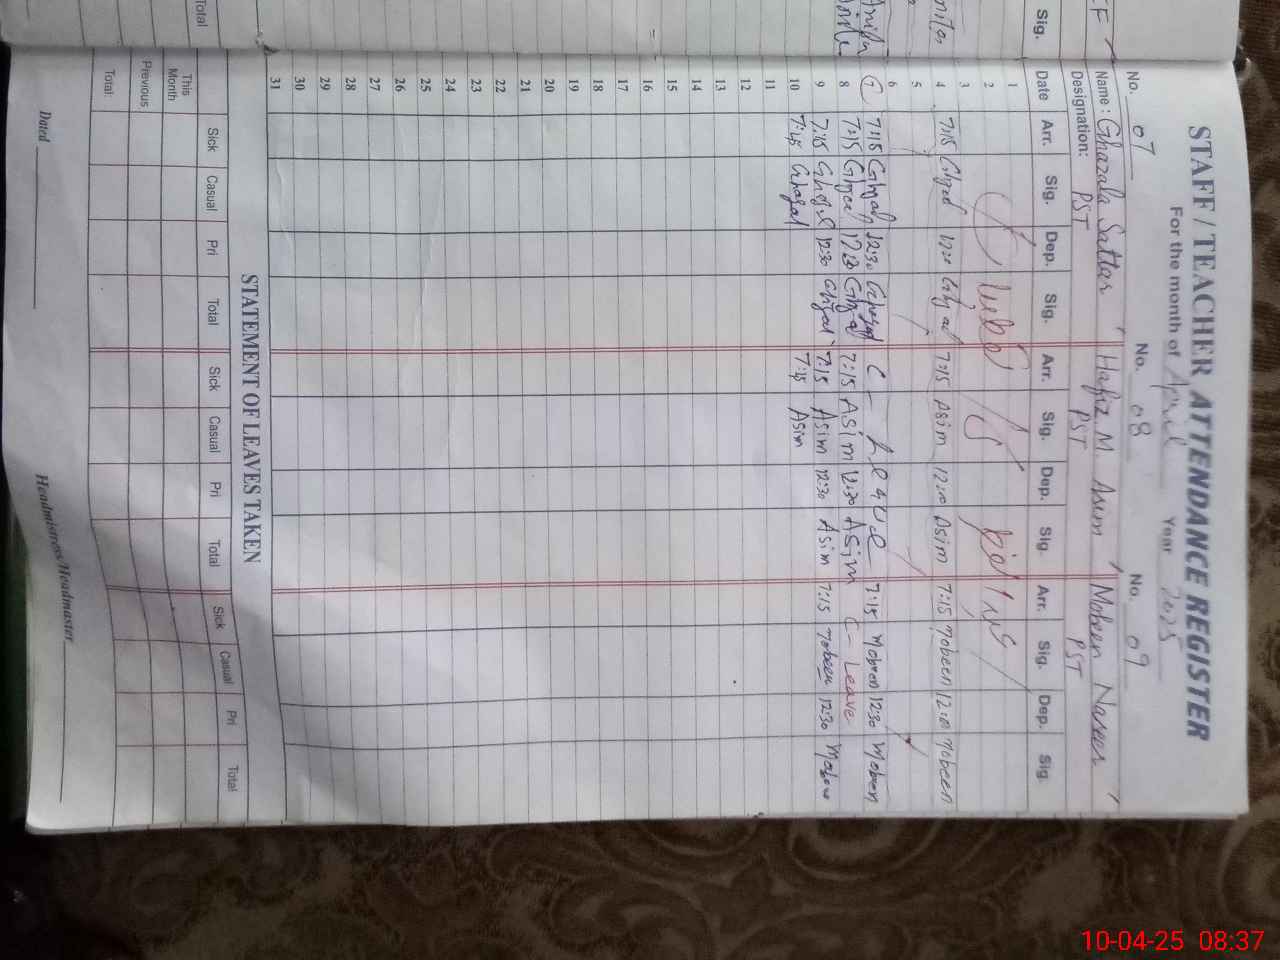 Sig.
Total
STAFF / TEACHER ATTENDANCE REGISTER
For the month of April Year 2025
No. 07 No. 08 No. 09
Name: Ghazala Sattar Hafiz M. Asim Mobeen Naseer
Designation: PST PST PST
Date Arr. Sig. Dep. Sig. Arr. Sig. Dep. Sig. Arr. Sig. Dep. Sig.
1
2
3
4 7:15 12:00 7:15 Asim 12:00 Asim 7:15 Mobeen 12:00 Mobeen
5
6
7 7:15 12:30 C - Leave 7:15 Mobeen 12:30 Mobeen
8 7:15 12:30 7:15 Asim 12:30 Asim C - Leave
9 7:15 12:30 7:15 Asim 12:30 Asim 7:15 Mobeen 12:30
10 7:15 Ghazal 7:15 Asim
11
12
13
14
15
16
17
18
19
20
21
22
23
24
25
26
27
28
29
30
31
STATEMENT OF LEAVES TAKEN
Sick Casual Pri Total Sick Casual Pri Total Sick Casual Pri Total
This Month
Previous
Total:
Dated Headmistress/Headmaster
10-04-25 08:37